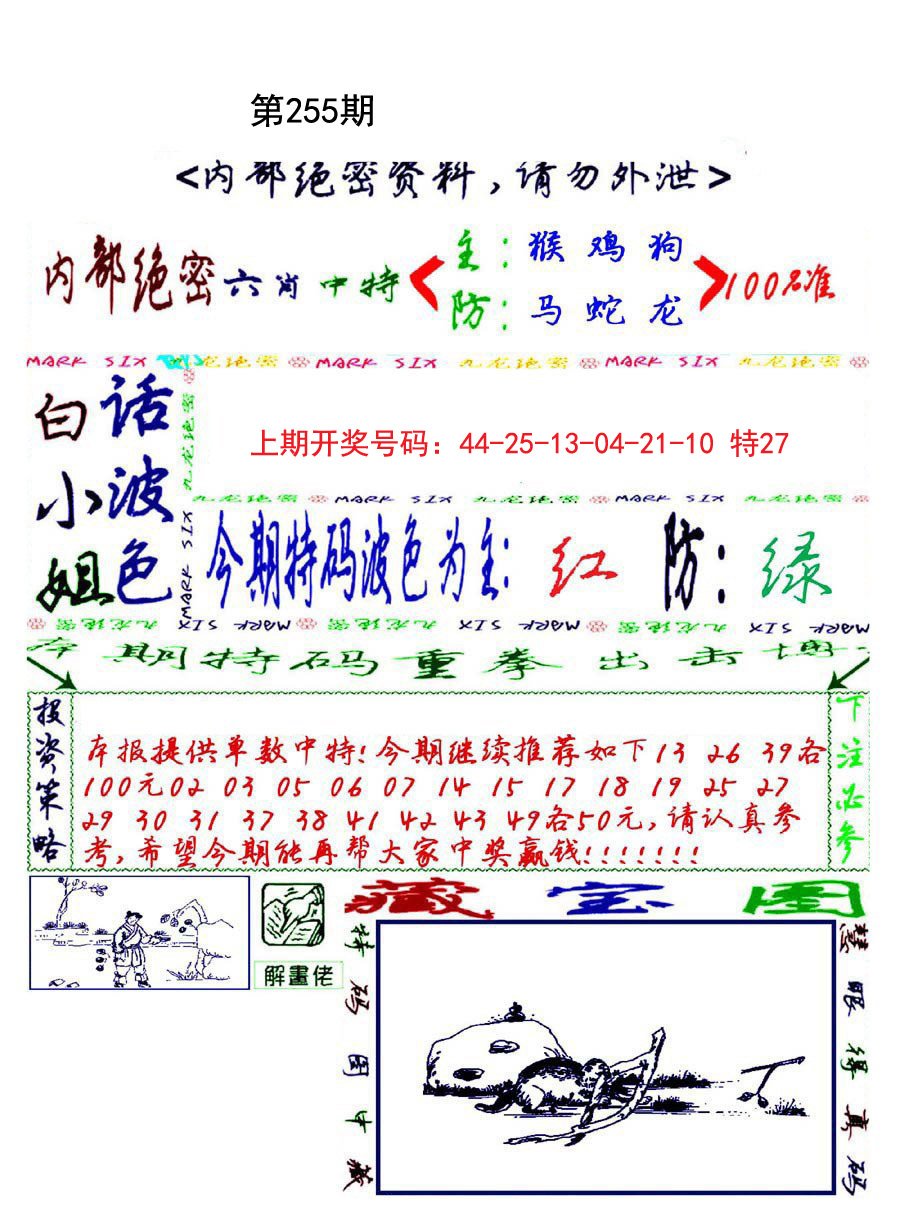 第255期
<内部绝密资料,请勿外泄>
内部绝密六肖中特
主:猴鸡狗
防:马蛇龙
100%准
MARK SIX 九龙绝密 MARK SIX 九龙绝密 MARK SIX 九龙绝密
白小姐
话波色
九龙绝密
MARK SIX
上期开奖号码：44-25-13-04-21-10 特27
九龙绝密 MARK SIX 九龙绝密 MARK SIX 九龙绝密
今期特码波色为主:红 防:绿
九龙绝密 MARK SIX MARK SIX 九龙绝密 MARK SIX MARK SIX 九龙绝密 MARK SIX
本期特码重拳出击博
投资策略
本报提供单数中特!今期继续推荐如下13 26 39各
100元02 03 05 06 07 14 15 17 18 19 25 27
29 30 31 37 38 41 42 43 49各50元,请认真参
考,希望今期能再帮大家中奖赢钱!!!!!!!
下注必参
解畫佬
藏宝图
特码图中藏
慧眼得真码